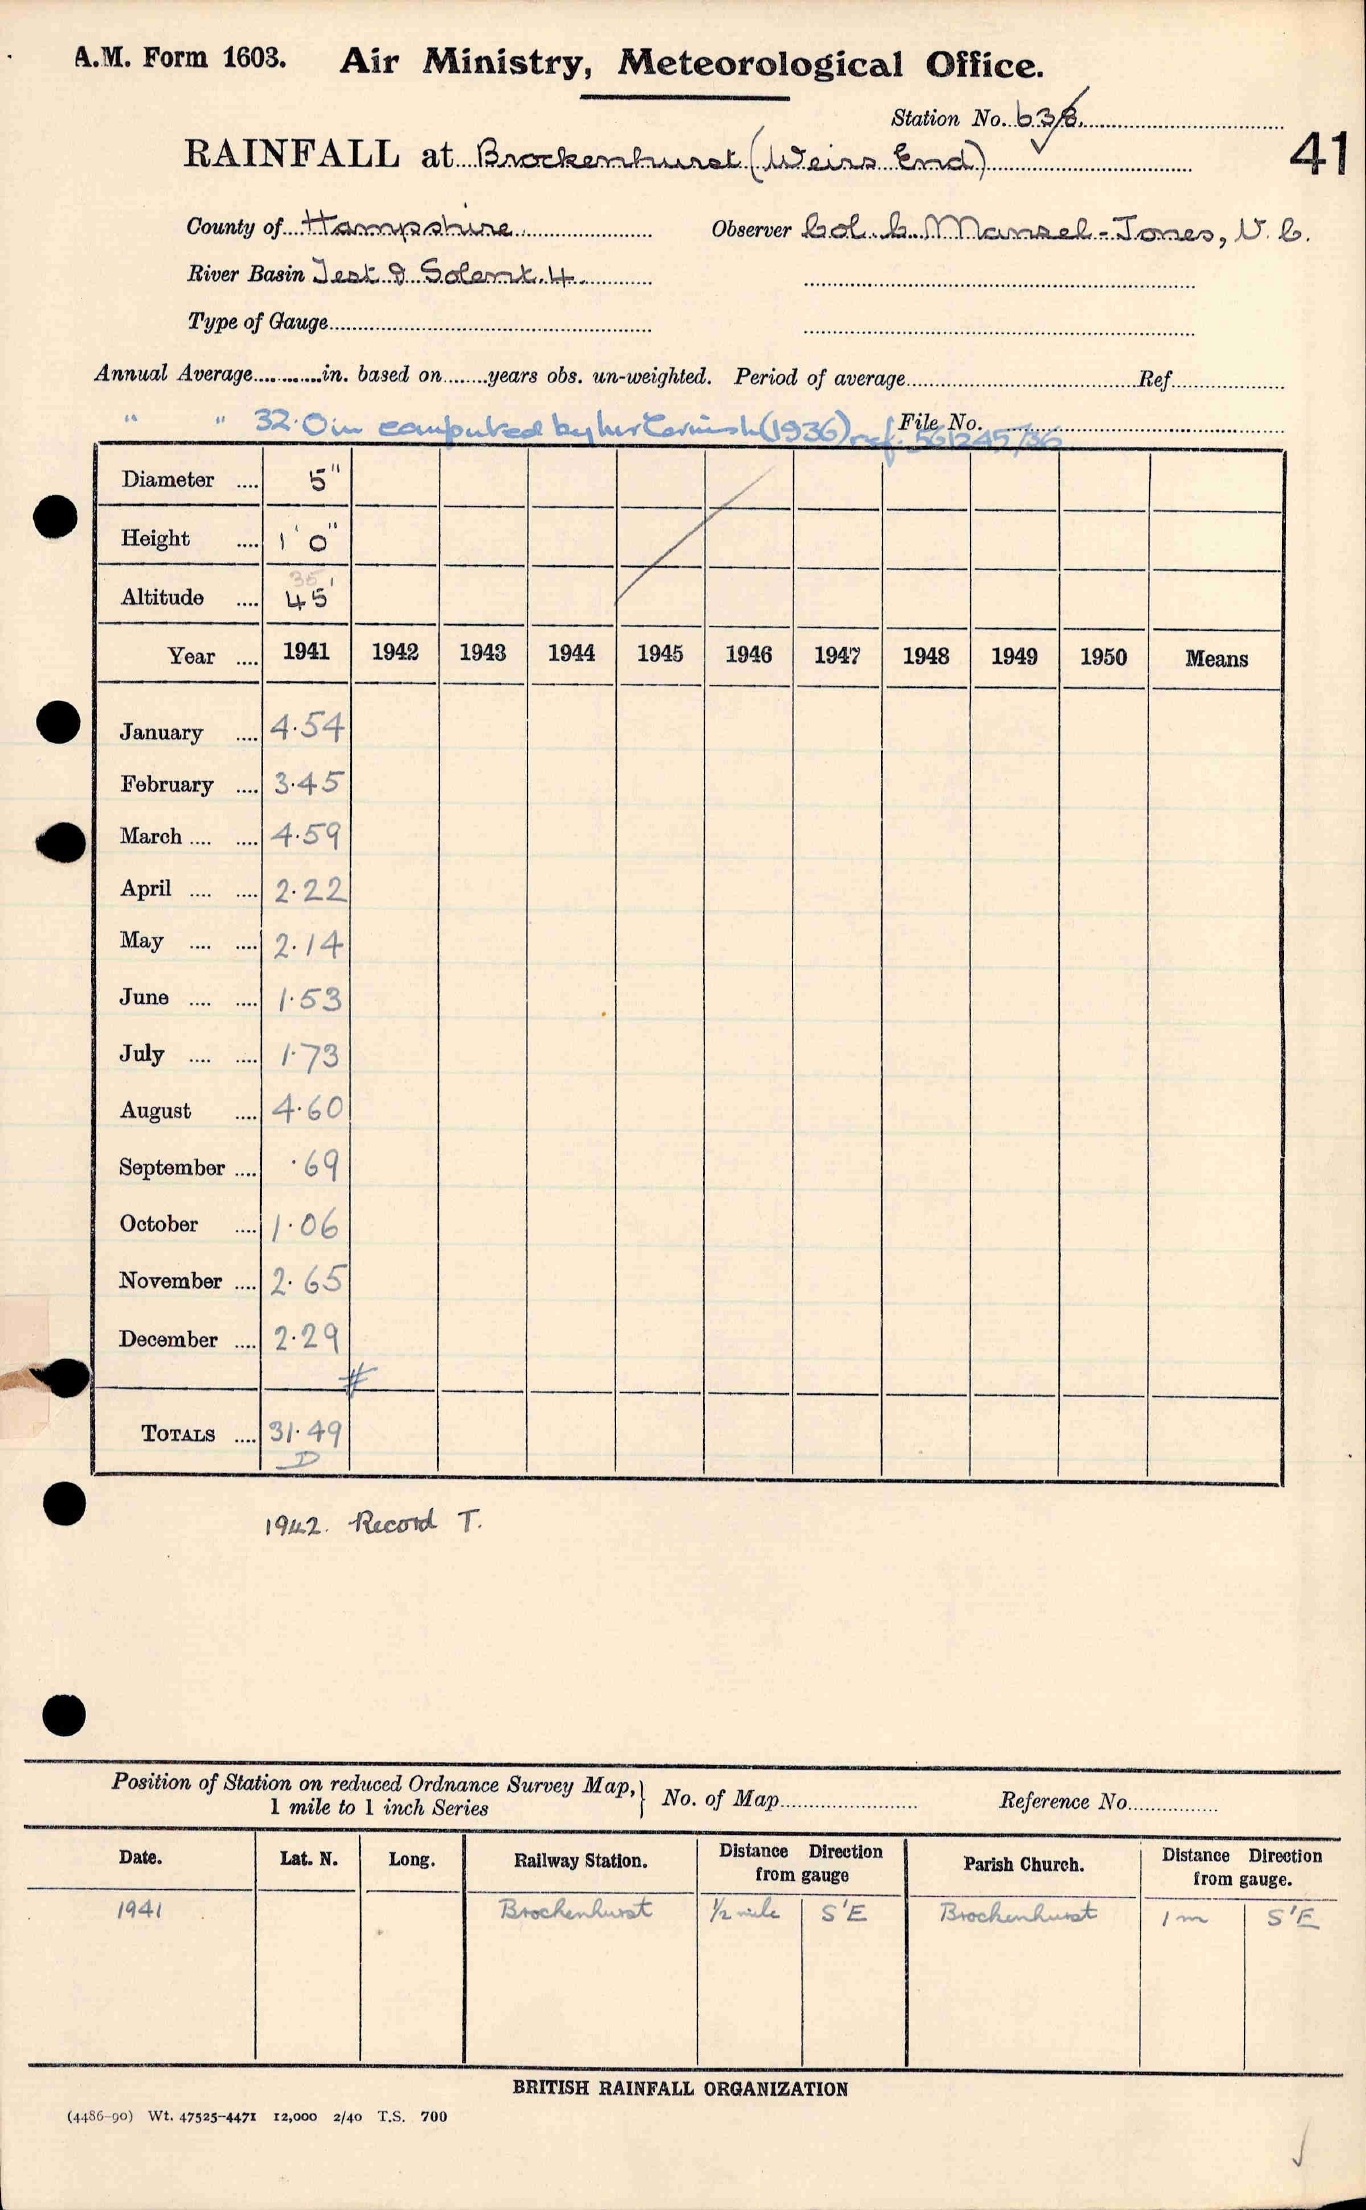 A.M. Form 1603. Air Ministry, Meteorological Office.
Station No. 638.
RAINFALL at Brockenhurst (Weirs End)
41
County of Hampshire Observer Col. C. Mansel-Jones, V.C.
River Basin Test & Solent. 4.
Type of Gauge
Annual Average in. based on years obs. un-weighted. Period of average Ref
" " 32.0 in computed by (1936) ref. 561245/36 File No.
Diameter 5"
Height 1' 0"
35
Altitude 45'
Year 1941 1942 1943 1944 1945 1946 1947 1948 1949 1950 Means
January 4.54
February 3.45
March 4.59
April 2.22
May 2.14
June 1.53
July 1.73
August 4.60
September .69
October 1.06
November 2.65
December 2.29
#
TOTALS 31.49
D
1942. Record T.
Position of Station on reduced Ordnance Survey Map, 1 mile to 1 inch Series } No. of Map Reference No.
Date. Lat. N. Long. Railway Station. Distance Direction from gauge Parish Church. Distance Direction from gauge.
1941 Brockenhurst 1/2 mile S'E Brockenhurst 1 m S'E
BRITISH RAINFALL ORGANIZATION
(4486-90) Wt. 47525-4471 12,000 2/40 T.S. 700